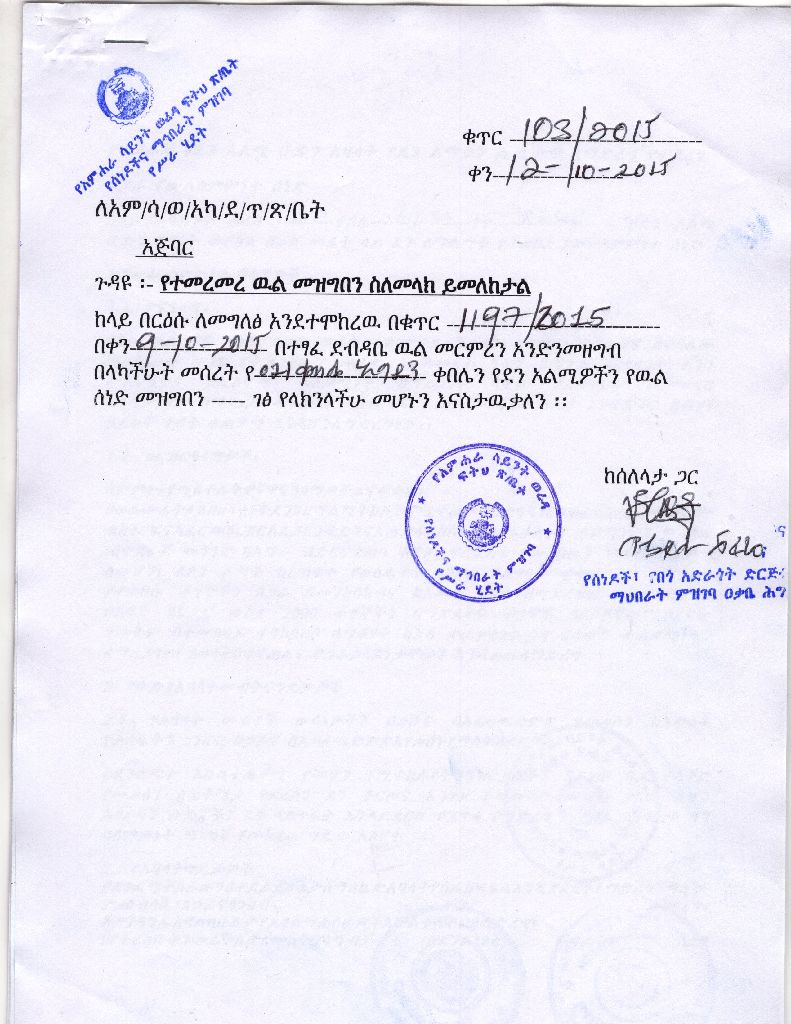 የአምሐራ ሳይንት ወረዳ ፍትህ ጽ/ቤት
የሰነዶችና ማኅበራት ምዝገባ
የሥራ ሂደት
ቁጥር 103/2015
ቀን 12-/10-2015
ለአም/ሳ/ወ/አካ/ደ/ጥ/ጽ/ቤት
አጅባር
ጉዳዩ ፡- የተመረመረ ዉል መዝግበን ስለመላክ ይመለከታል
ከላይ በርዕሱ ለመግለፅ እንደተሞከረዉ በቁጥር 1197/2015
በቀን 9-10-2015 በተፃፈ ደብዳቤ ዉል መርምረን እንድንመዘግብ
በላካችሁት መሰረት የ ቀበሌን የደን አልሚዎችን የዉል
ሰነድ መዝግበን ----- ገፅ የላክንላችሁ መሆኑን እናስታዉቃለን ፡፡
የአምሐራ ሳይንት ወረዳ
ፍትህ ጽ/ቤት
የሰነዶችና ማኅበራት ምዝገባ
የሥራ ሂደት
ከሰለላታ ጋር
የሰነዶች፣ የበጎ አድራጎት ድርጅ
ማህበራት ምዝገባ ዐቃቤ ሕግ